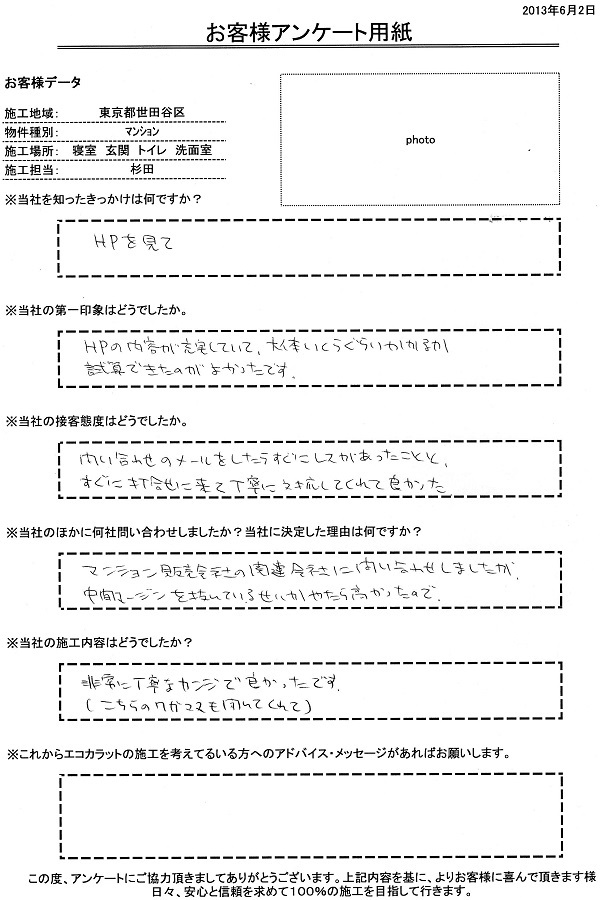 2013年6月2日
お客様アンケート用紙
お客様データ
施工地域: 東京都世田谷区
物件種別: マンション
施工場所: 寝室 玄関 トイレ 洗面室
施工担当: 杉田
photo
※当社を知ったきっかけは何ですか？
HPを見て
※当社の第一印象はどうでしたか。
HPの内容が充実していて、大体いくらぐらいかかるか
試算できたのがよかったです.
※当社の接客態度はどうでしたか。
問い合わせのメールをしたらすぐにレスがあったことと、
すぐに打合せに来て丁寧に対応してくれて良かった
※当社のほかに何社問い合わせしましたか？当社に決定した理由は何ですか？
マンション販売会社の関連会社に問い合わせしましたが、
中間マージンを抜いているせいかやたら高かったので.
※当社の施工内容はどうでしたか？
非常に丁寧なカンジで良かったです.
(こちらのワガママも聞いてくれて)
※これからエコカラットの施工を考えてるいる方へのアドバイス・メッセージがあればお願いします。
この度、アンケートにご協力頂きましてありがとうございます。上記内容を基に、よりお客様に喜んで頂きます様
日々、安心と信頼を求めて100％の施工を目指して行きます。